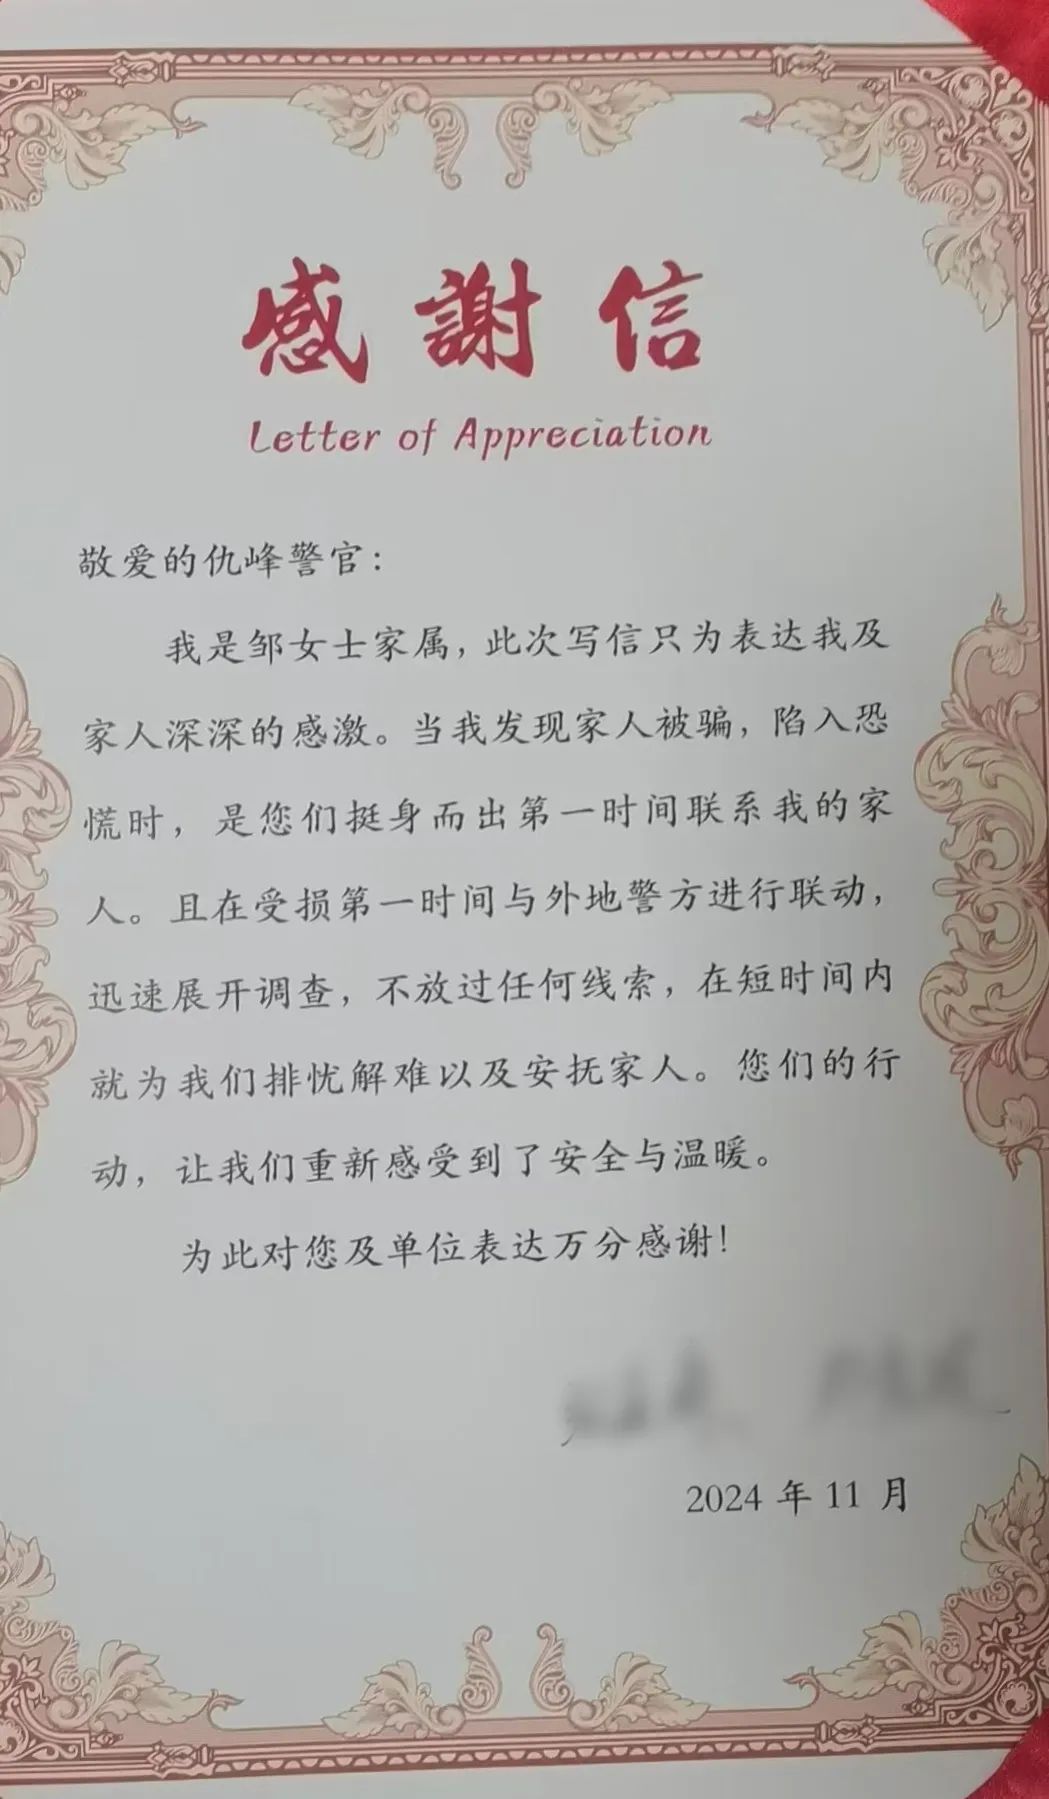 感謝信
Letter of Appreciation
敬爱的仇峰警官：
我是邹女士家属，此次写信只为表达我及
家人深深的感激。当我发现家人被骗，陷入恐
慌时，是您们挺身而出第一时间联系我的家
人。且在受损第一时间与外地警方进行联动，
迅速展开调查，不放过任何线索，在短时间内
就为我们排忧解难以及安抚家人。您们的行
动，让我们重新感受到了安全与温暖。
为此对您及单位表达万分感谢！
2024 年 11 月